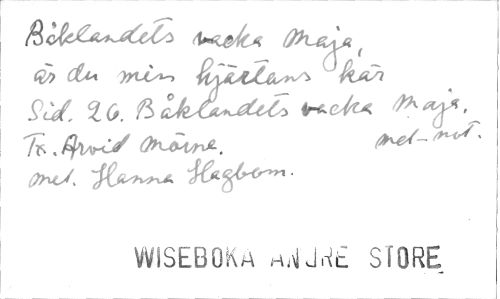 Båklandets vacka Maja,
är du min hjärtans kär
Sid. 26. Båklandets vacka Maja.
Tx. Arvid Mörne. mel-not.
mel. Hanna Hagbom.
WISEBOKA ANDRE STORE